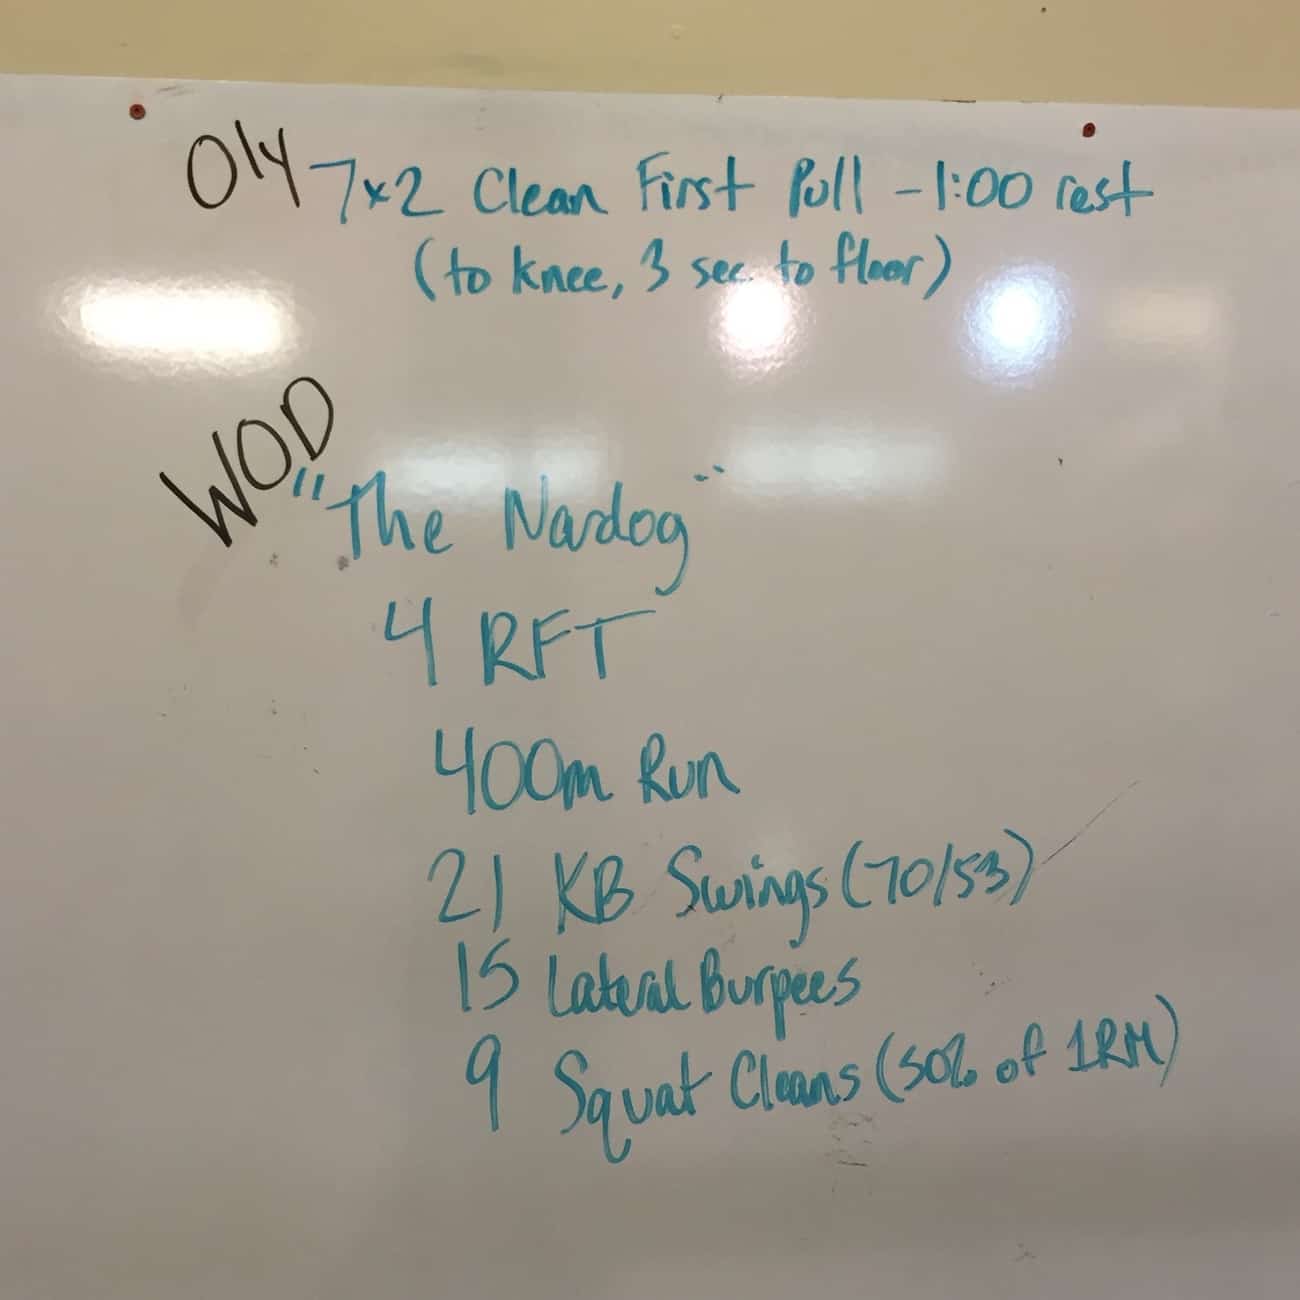 Oly 7x2 Clean First Pull - 1:00 rest
(to knee, 3 sec to floor)
WOD
"The Nardog"
4 RFT
400m Run
21 KB Swings (70/53)
15 Lateral Burpees
9 Squat Cleans (50% of 1RM)